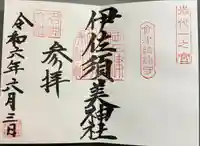 岩代一之宮
伊佐須美神社
参拝
令和六年六月三日